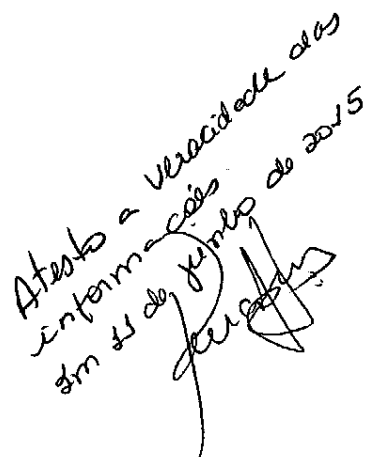 Atesto a veracidade das
informações
Em 11 de junho de 2015